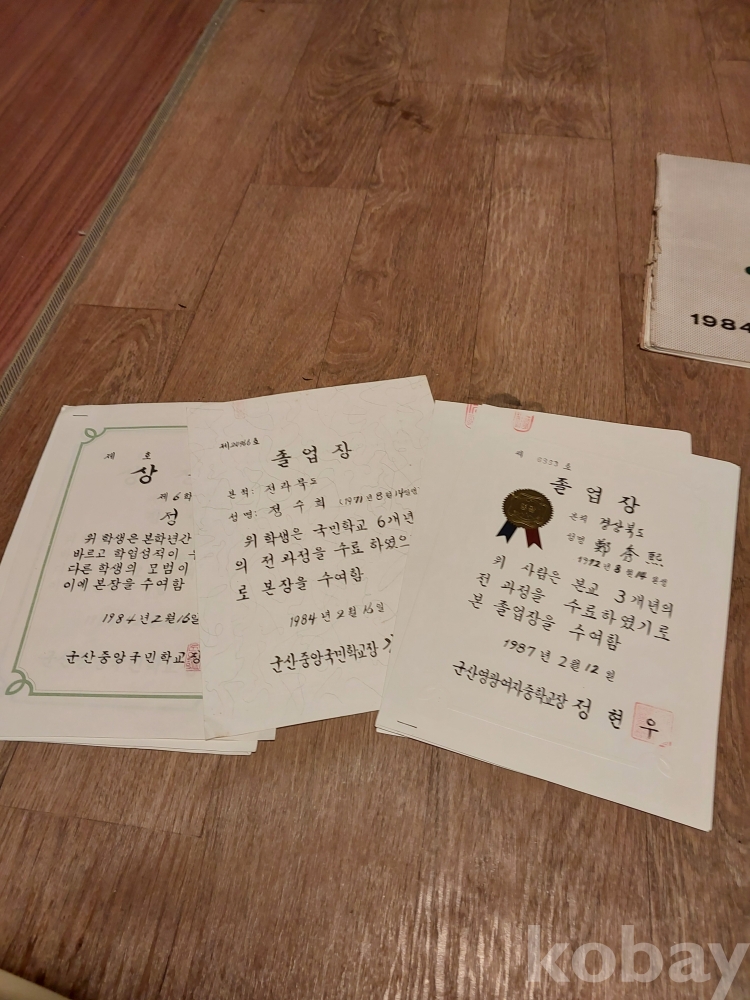 제 호
상
제6학
정
위 학생은 본학년간
바르고 학업성적이
다른 학생의 모범이
이에 본장을 수여함
1984년 2월 16일
군산중앙국민학교장
졸업장
본적: 전라북도
성명: 정수희 (1971년 8월 14일생)
위 학생은 국민학교 6개년
의 전 과정을 수료하였으
로 본장을 수여함
1984년 2월 16일
군산중앙국민학교장
제 0333 호
졸업장
본적 경상북도
성명 鄭秀熙
1972년 8월 14일생
위 사람은 본교 3개년의
전 과정을 수료하였기로
본 졸업장을 수여함
1987년 2월 12일
군산영광여자중학교장 정현우
1984
kobay